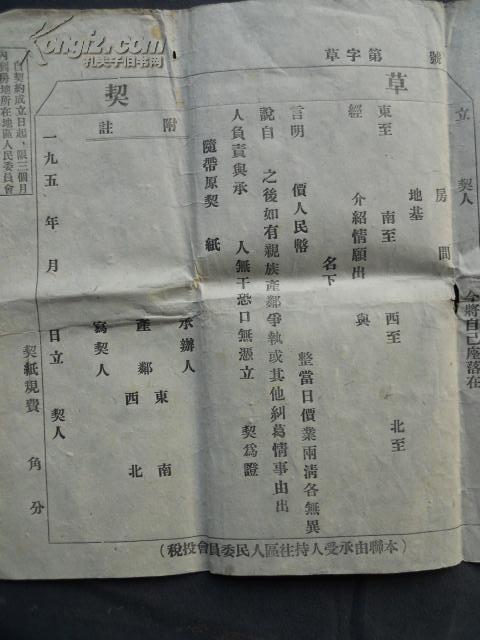 kongfz.com
孔夫子旧书网
草字第　號
草　契
立　契人　今將自己座落在
房　間
地基
東至　南至　西至　北至
經　介紹情願出　與
名下
言明　價人民幣　整當日價業兩清各無異
說自　之後如有親族產鄰爭執或其他糾葛情事由出
人負責與承　人無干恐口無憑立　契為證
隨帶原契　紙
附註
承辦人
產鄰　東　南　西　北
寫契人
一九五　年　月　日立　契人
契紙規費　角　分
自契約成立日起，限三個月
內到房地所在地區人民委員會
（本聯由承受人持往區人民委員會投稅）